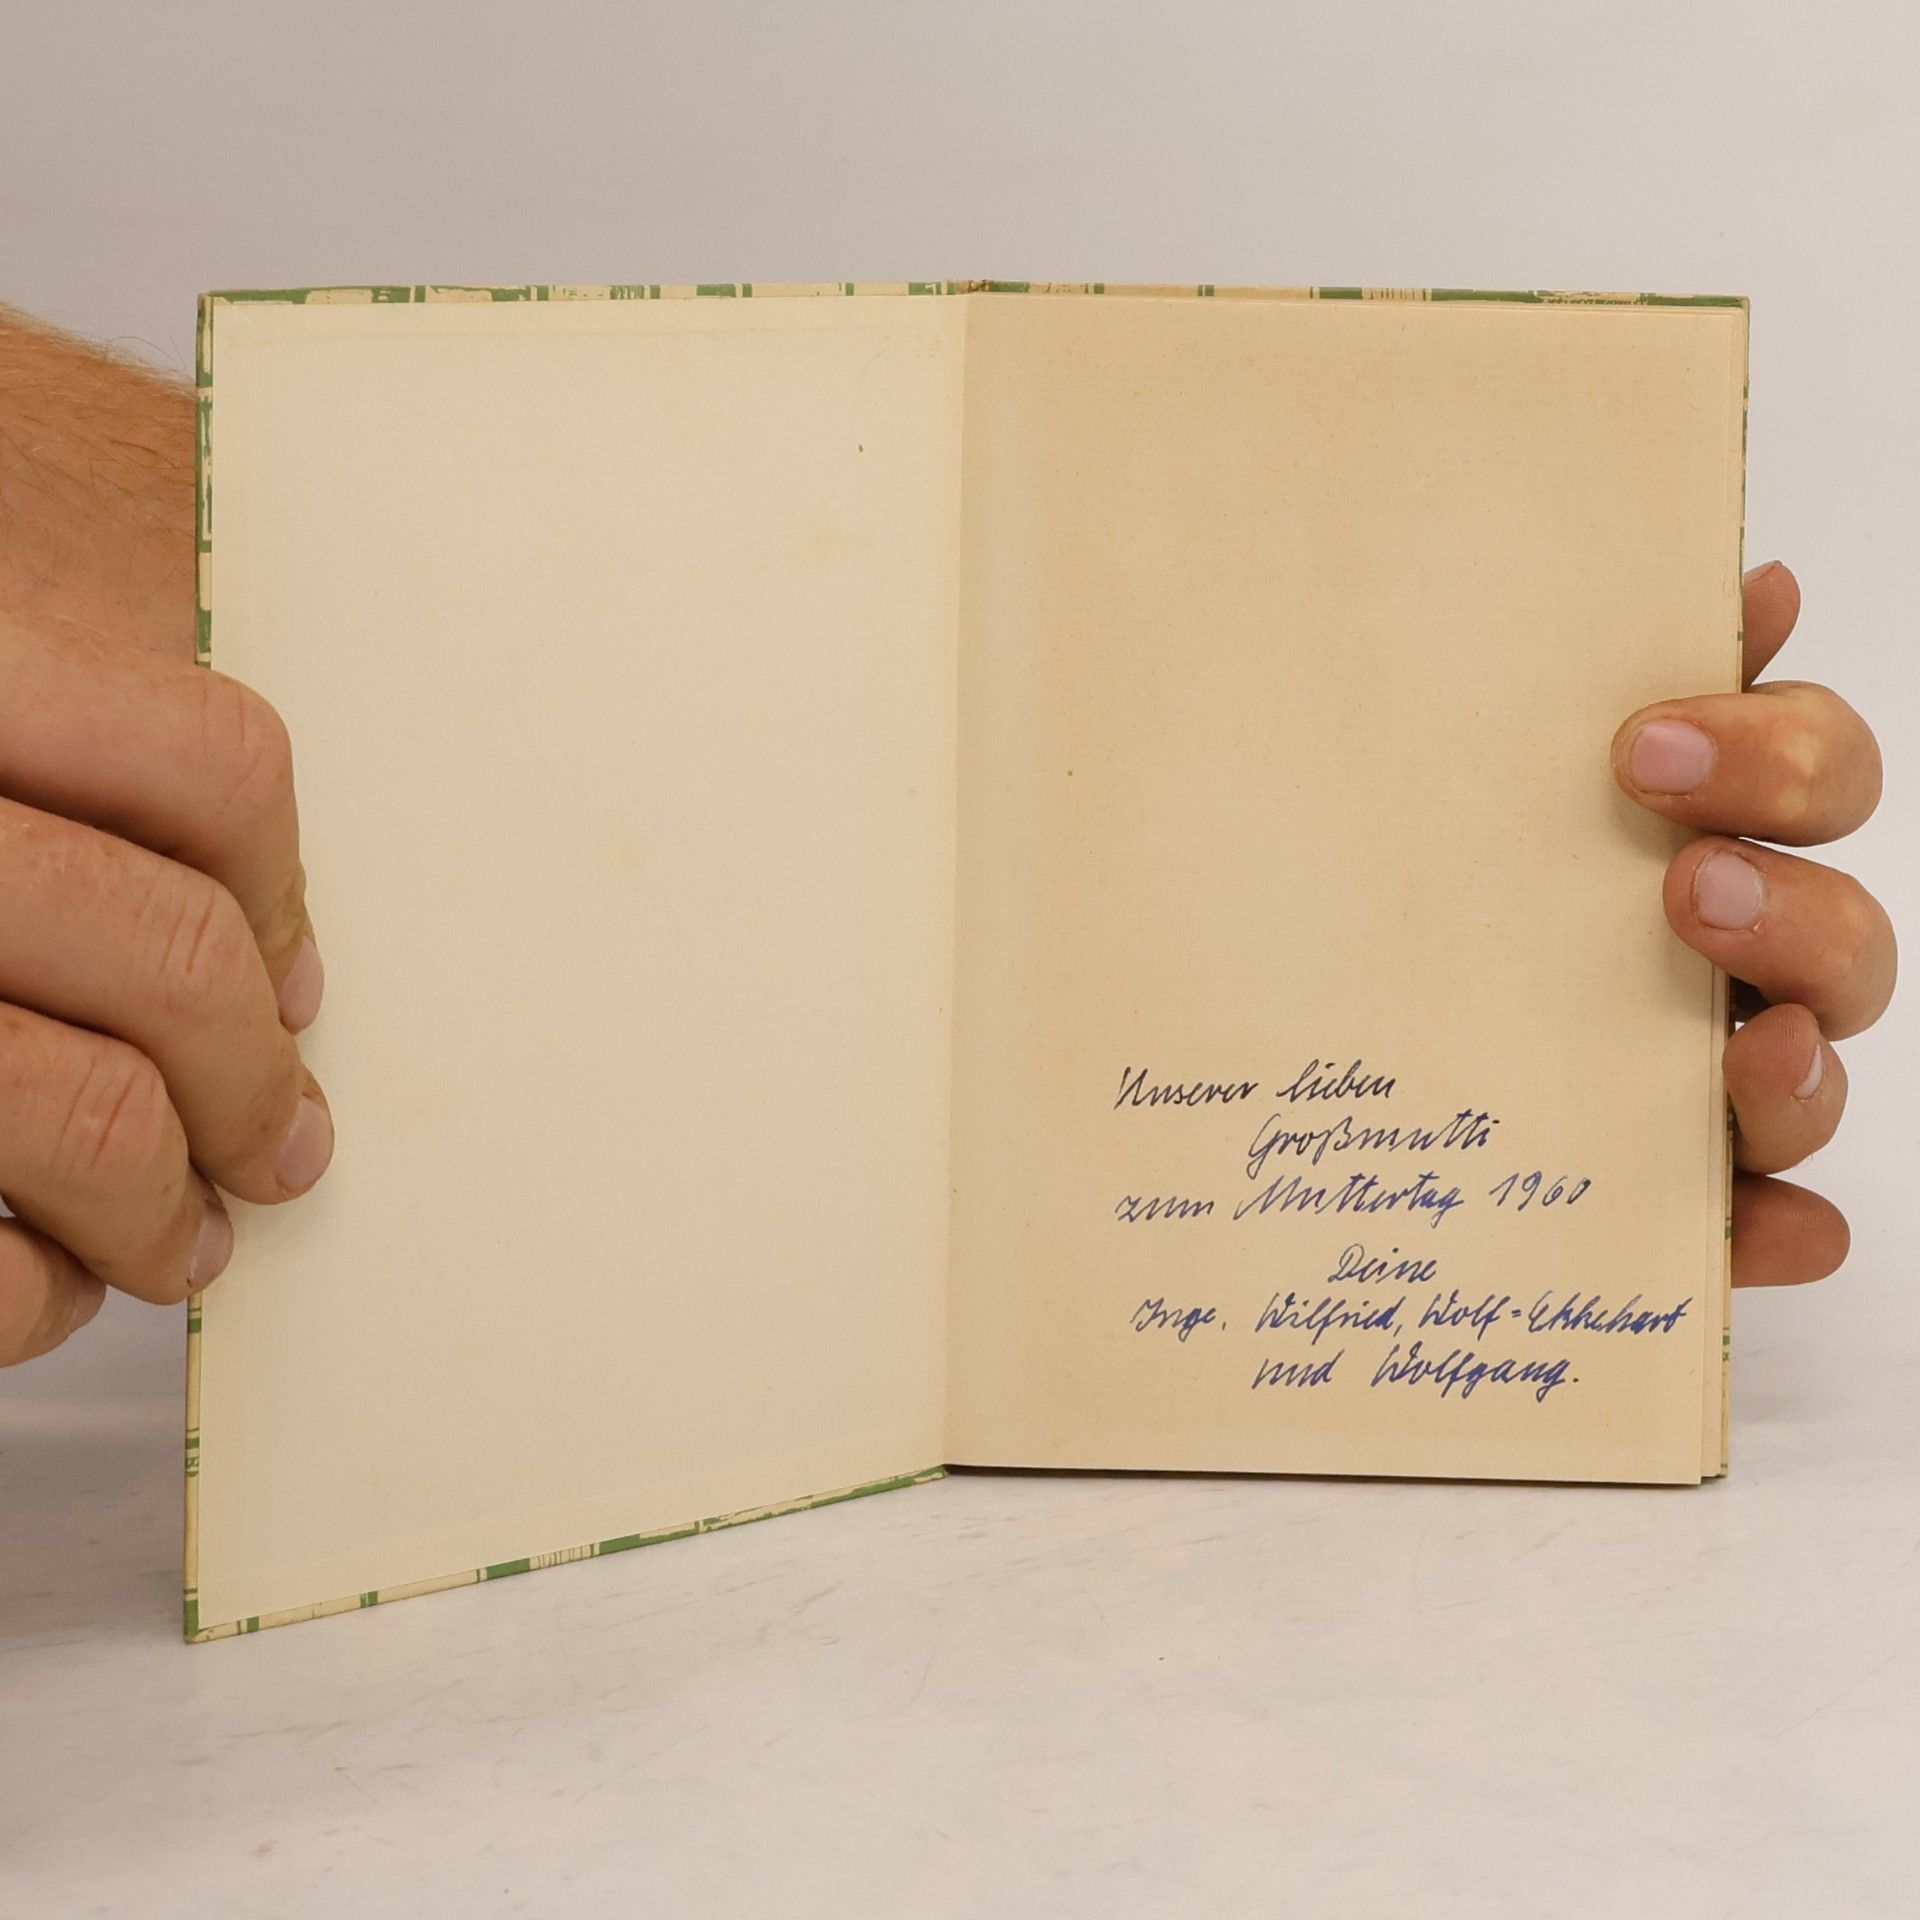 Unserer lieben
Großmutti
zum Muttertag 1960
Deine
Inge, Wilfried, Wolf=Ekkehart
und Wolfgang.